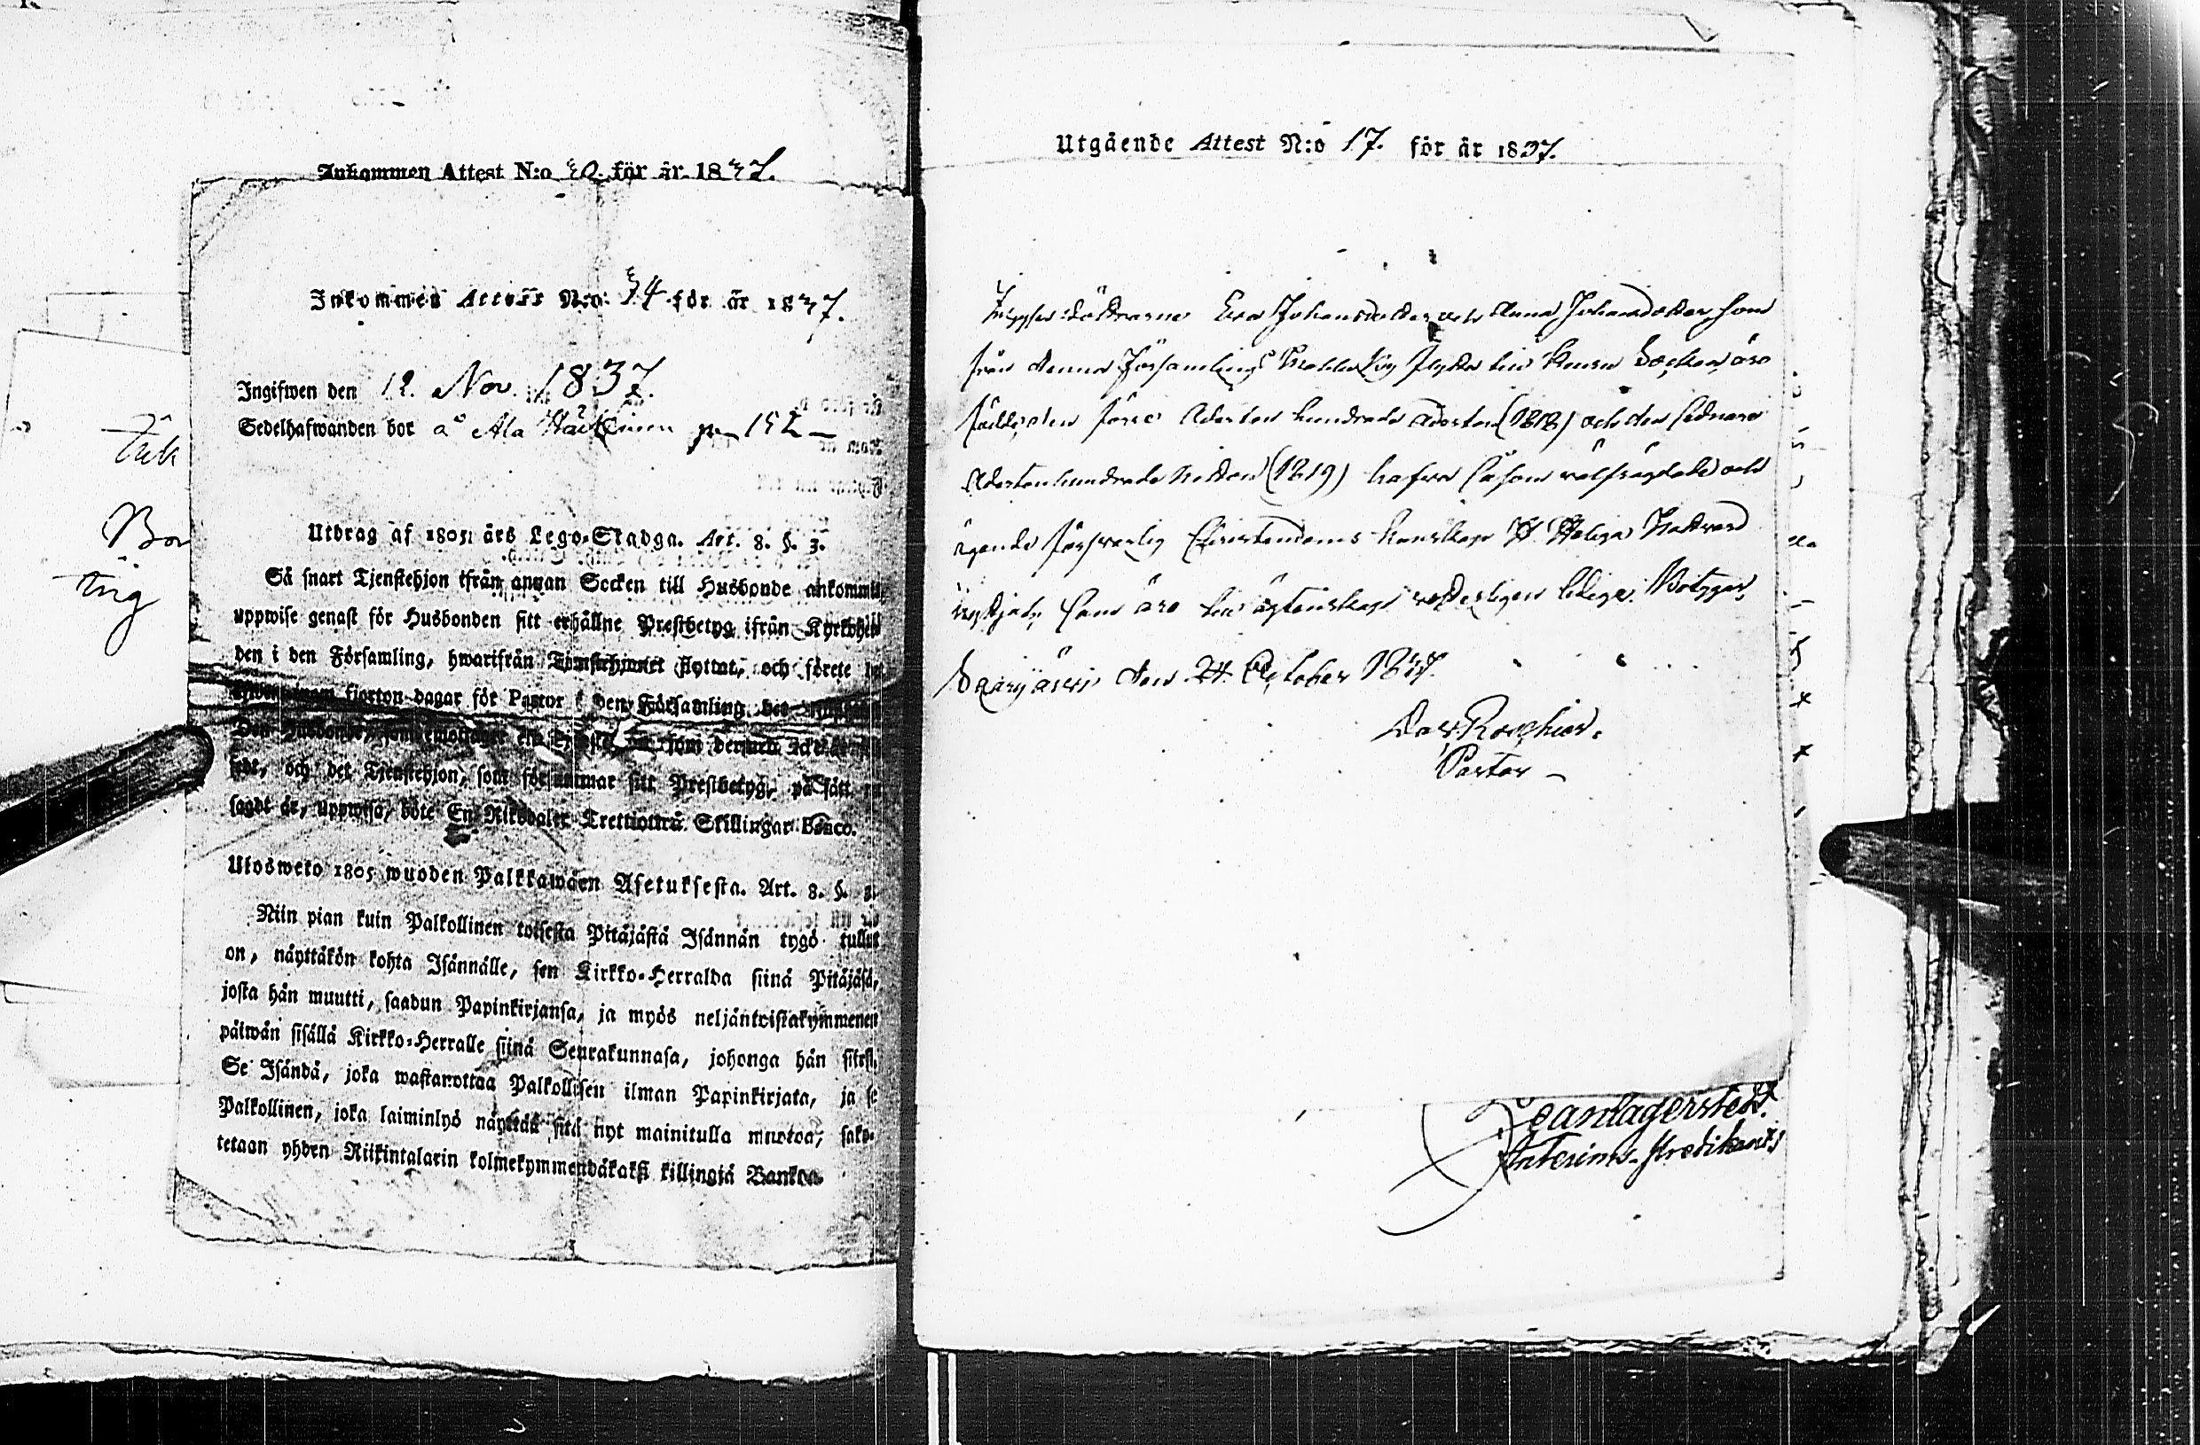 Inkommen Attest N:o 30. för år 1837.
Inkommen Attest N:o 34 för år 1837.
Ingifwen den 12. Nov. 1837.
Sedelhafwanden bor å Ala Häckinen p 152
Utdrag af 1805 års Lego-Stadga. Art. 8. §. 3.
Så snart Tjenstehjon ifrån annan Socken till Husbonde ankommit,
uppwise genast för Husbonden sitt erhållne Prestbetyg ifrån Kyrkoher-
den i den Församling, hwarifrån Tjenstehjonet flyttat, och förete
fjorton dagar för Pastor i den Församling
Den Husbonde, som
och det Tjenstehjon, som försummar sitt Prestbetyg, på sätt
sagdt är, uppwisa, böte En Riksdaler Trettiotwå Skillingar Banco.
Ulosweto 1805 wuoden Palkkawäen Asetuksesta. Art. 8. §. 3.
Niin pian kuin Palkollinen toisesta Pitäjästä Isännän tygö tullut
on, näyttäkön kohta Isännälle, sen Kirkko-Herralda siinä Pitäjäsä,
josta hän muutti, saadun Papinkirjansa, ja myös neljäntoistakymmenen
päiwän sisällä Kirkko-Herralle siinä Seurakunnasa, johonga hän siirsi.
Se Isändä, joka wastanottaa Palkollisen ilman Papinkirjata, ja se
Palkollinen, joka laiminlyö näyttää sitä nyt mainitulla muotoa, sako-
tetaan yhden Riikintalarin kolmekymmendäkaksi killingiä Bankoa.
täk
Bor
tig
Utgående Attest N:o 17. för år 1837.
döttrarne Eva Johansdotter och Anna Johansdotter som
från denna Församling flytta till Socken, äro
födde, den förre Aderton hundrade Aderton (1818) och den sednare
Adertonhundrade Nitton (1819) hafva såsom välfrägdade och
ägande försvarlig Christendoms kunskap H. Heliga Nattvard
begått, samt äro till ägtenskap ledige. Betygar,
Saarijärvi den 24 October 1837.
Pastor
Interims-Predikant